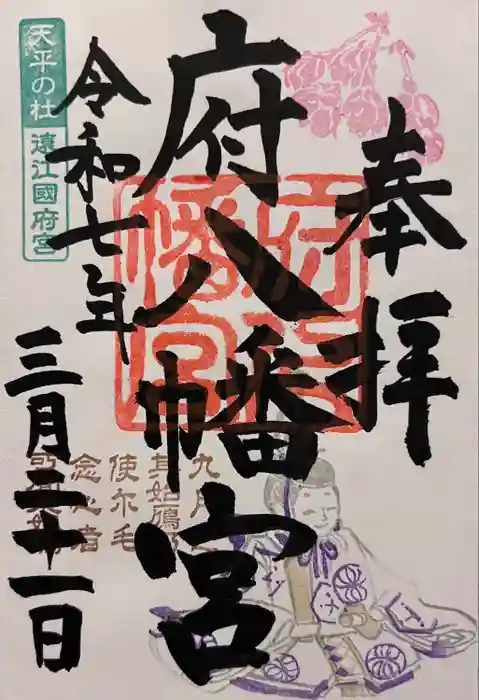 奉拝
府八幡宮
令和七年
三月二十一日
天平の杜
遠江國府宮
府八
幡宮
九月
其如鴈
使尔毛
念心者